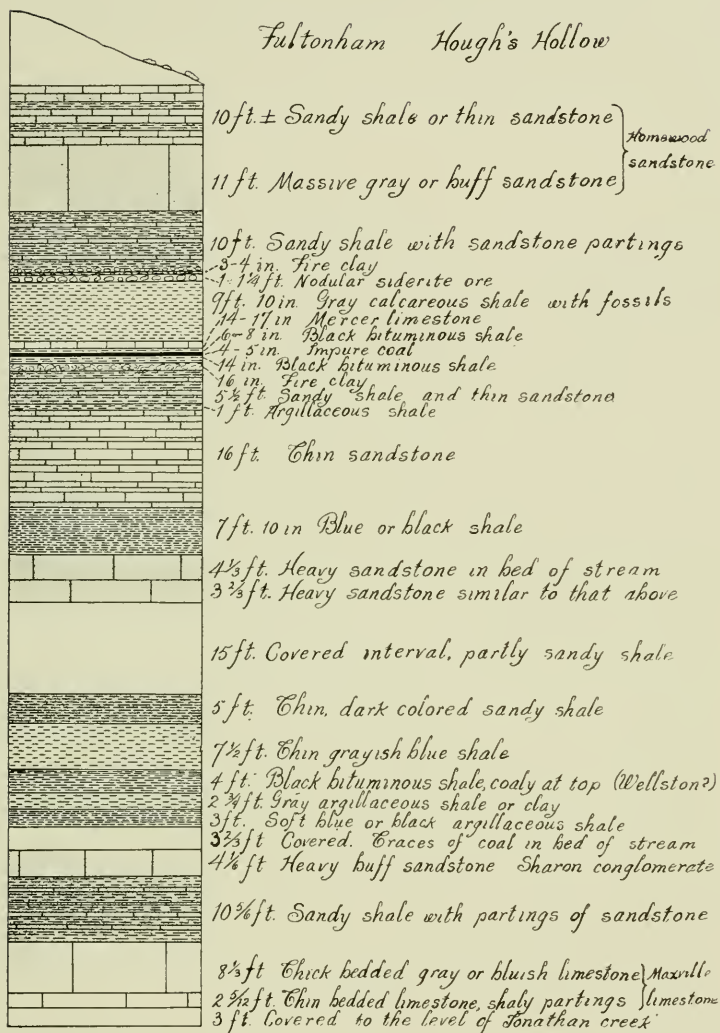 Fultonham Hough's Hollow
10 ft. ± Sandy shale or thin sandstone
11 ft. Massive gray or buff sandstone
Homewood
sandstone
10 ft. Sandy shale with sandstone partings
3-4 in. Fire clay
1-1¼ ft. Nodular siderite ore
9 ft. 10 in. Gray calcareous shale with fossils
14-17 in Mercer limestone
6-8 in. Black bituminous shale
4-5 in. Impure coal
14 in. Black bituminous shale
16 in. Fire clay
5½ ft. Sandy shale and thin sandstone
1 ft. Argillaceous shale
16 ft. Thin sandstone
7 ft. 10 in Blue or black shale
4⅓ ft. Heavy sandstone in bed of stream
3⅔ ft. Heavy sandstone similar to that above
15 ft. Covered interval, partly sandy shale
5 ft. Thin, dark colored sandy shale
7½ ft. Thin grayish blue shale
4 ft. Black bituminous shale, coaly at top (Wellston?)
2¾ ft. Gray argillaceous shale or clay
3 ft. Soft blue or black argillaceous shale
3⅔ ft Covered. Traces of coal in bed of stream
4⅙ ft Heavy buff sandstone Sharon conglomerate
10⅚ ft. Sandy shale with partings of sandstone
8⅓ ft Thick bedded gray or bluish limestone
2 5/12 ft. Thin bedded limestone, shaly partings
Maxville
limestone
3 ft. Covered to the level of Jonathan creek